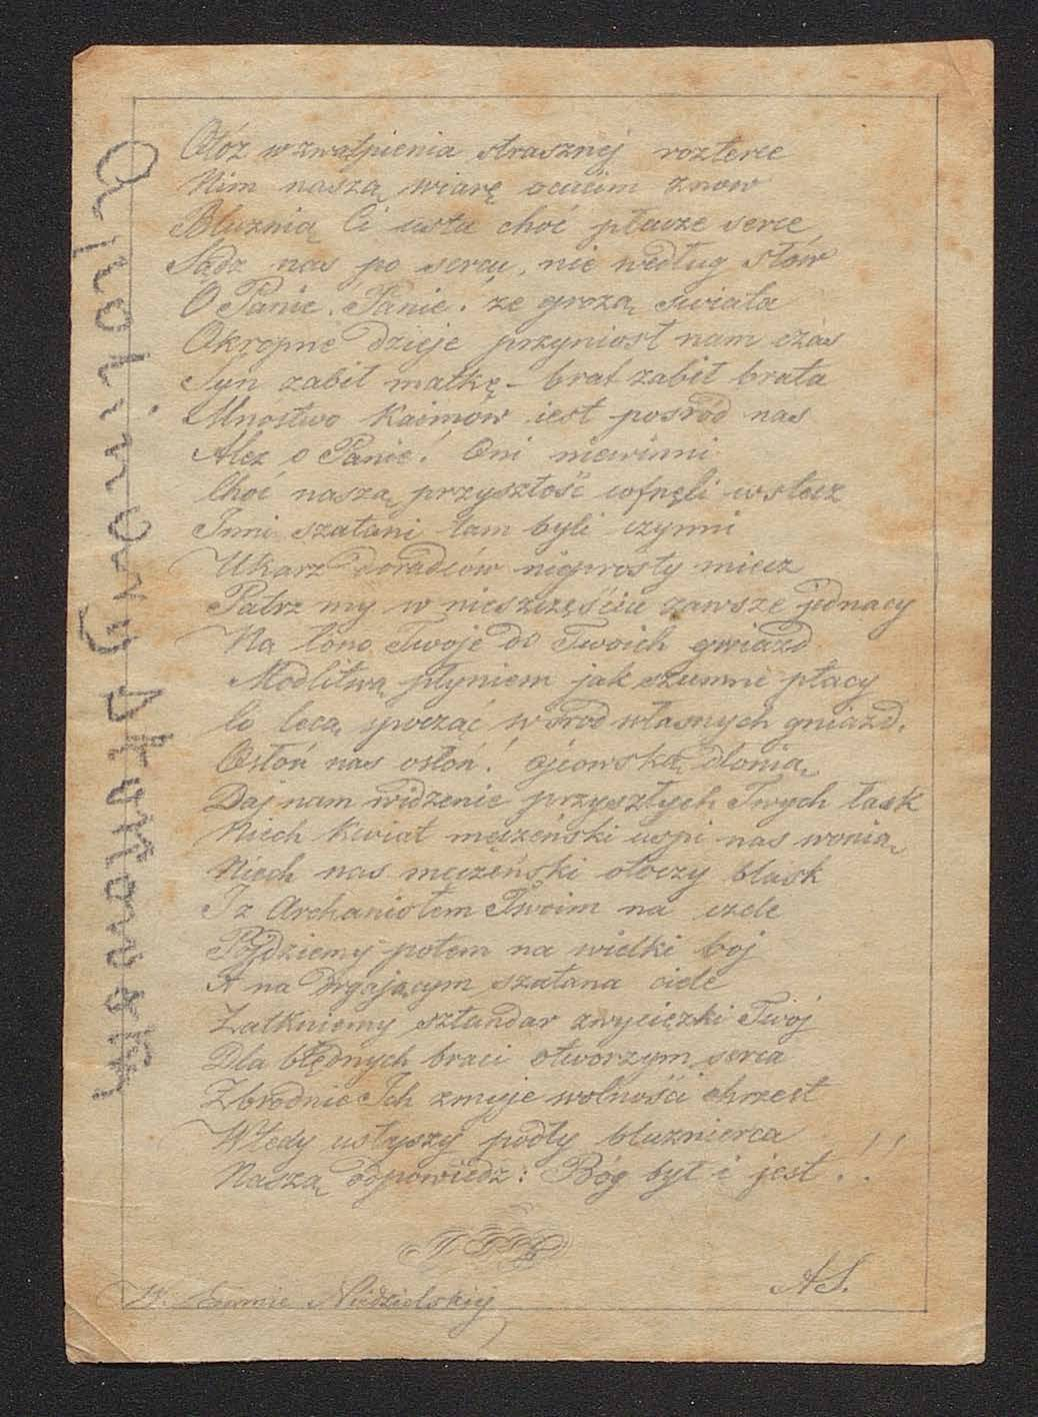 Otóz w zwątpienia strasznéj rozterce
Nim naszą wiarę ocucim znow
Bluznią Ci usta choć płacze serce
Sądz nas po sercu, nie według słów
O Panie, Panie! ze grozą swiata
Okropne dzieje przyniosł nam czas
Syn zabił matkę – brat zabił brata
Mnóstwo Kaimów iest pośród nas
Alez o Panie! Oni niewinni
Choć naszą przyszłość cofnęli wstecz
Inni szatani tam byli czynni
Ukarz doradców nieprosty miecz
Patrz my w nieszczęściu zawsze jednacy
Na łono Twoje do Twoich gwiazd
Modlitwą płyniem jak szumne ptacy
Co lecą spocząć wsrod własnych gniazd.
Osłoń nas osłoń! ojcowską dłonią
Daj nam widzenie przyszłych Twych łask
Niech Kwiat męczeński uspi nas wonią
Niech nas męczeński otoczy blask
I z Archaniołem Twoim na czele
Pójdziemy potem na wielki boj
I na drgającym szatana ciele
Zatkniemy sztandar zwycięzki Twój
Dla błędnych braci otworzym serca
Zbrodnie Ich zmyje wolności chrzest
Wtedy usłyszy podły bluznierca
Naszą odpowiedz: Bóg był i jest!!
AS.
Niedzielskiéj